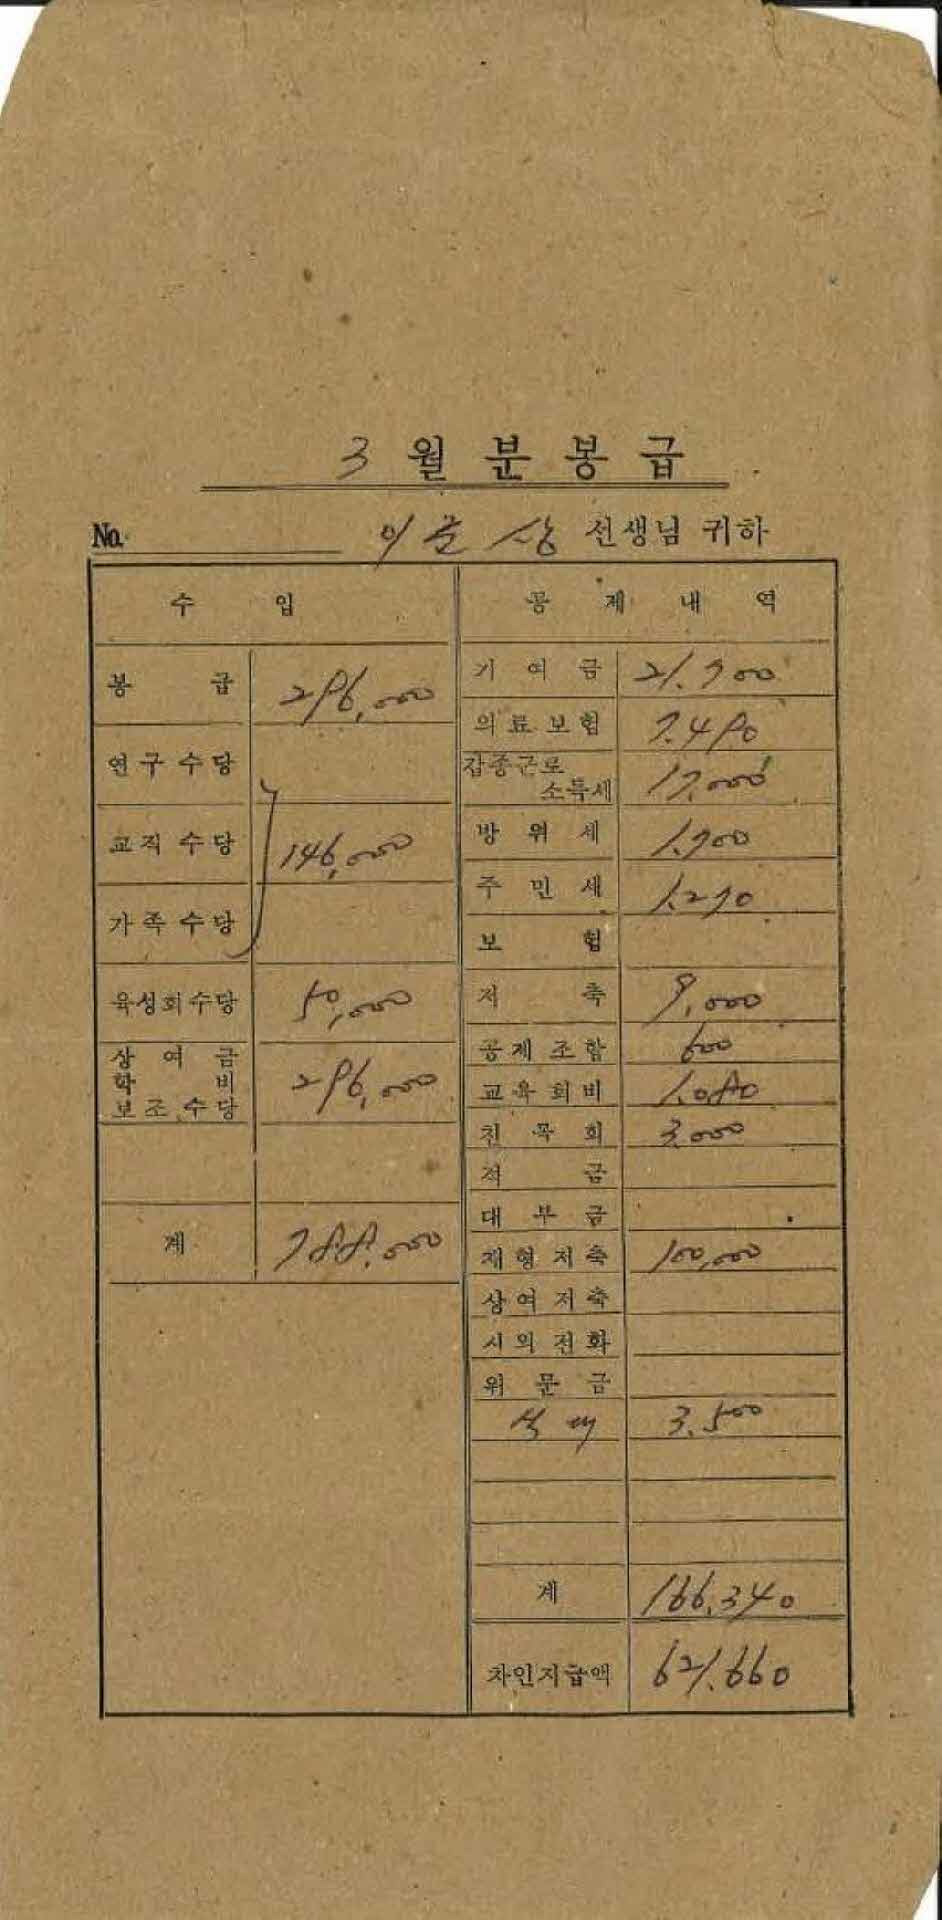 3 월 분 봉 급
No. 이 상 선생님 귀하
수 입
공 제 내 역
봉 급 296,000
연구수당
교직수당 146,000
가족수당
육성회수당 50,000
상 여 금
학 비
보조수당 296,000
계 788.000
기 여 금 21.700
의료보험 7.490
갑종근로
소득세 17.000
방 위 세 1.700
주 민 세 1.270
보 험
저 축 9,000
공제조합 600
교육회비 1.080
친 목 회 3.000
적 금
대 부 금
재형저축 100,000
상여저축
시외전화
위 문 금
식 대 3.500
계 166.340
차인지급액 621.660